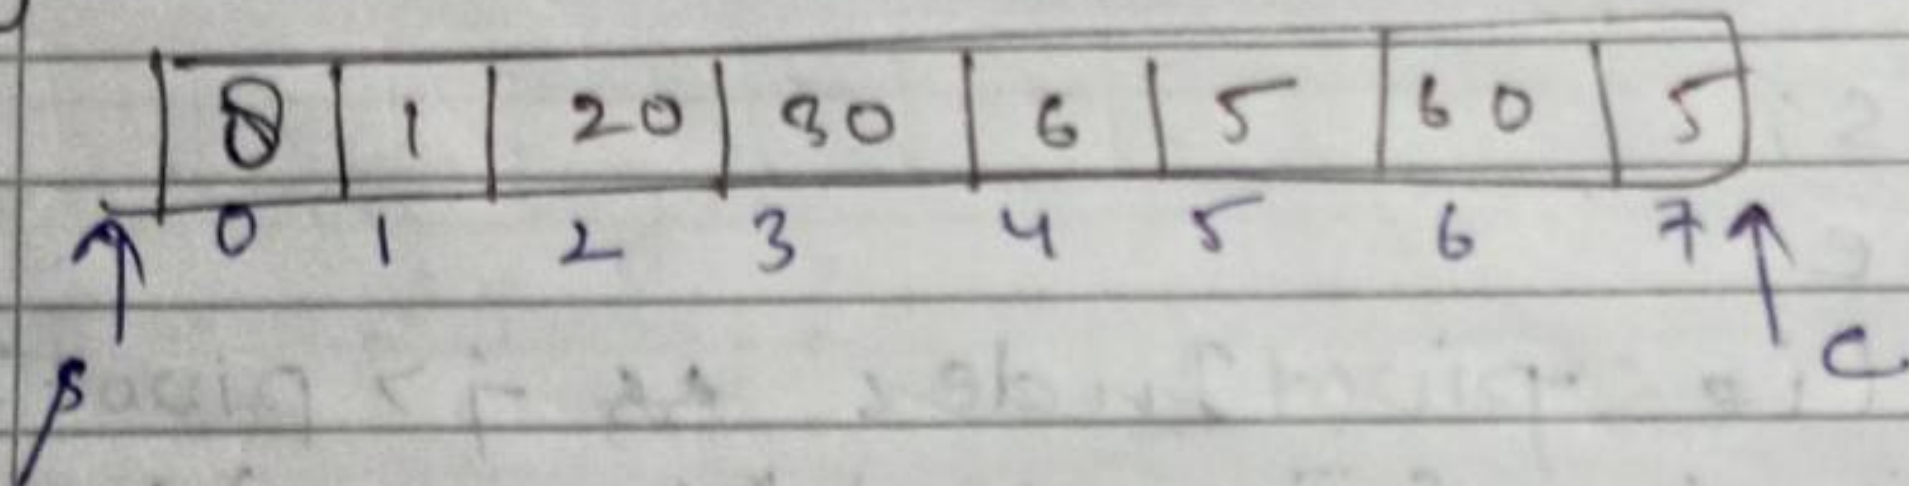 8 1 20 30 6 5 60 5
0 1 2 3 4 5 6 7